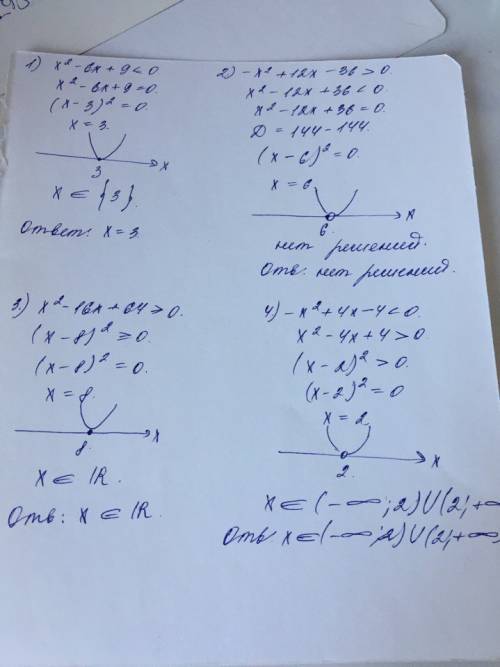 1) x² - 6x + 9 < 0
x² - 6x + 9 = 0.
(x - 3)² = 0.
x = 3.
3
x
x ∈ {3}.
Ответ: x = 3
2) -x² + 12x - 36 > 0.
x² - 12x + 36 < 0.
x² - 12x + 36 = 0.
D = 144 - 144.
(x - 6)² = 0.
x = 6
6
x
нет решений.
Отв: нет решений.
3) x² - 16x + 64 ≥ 0.
(x - 8)² ≥ 0.
(x - 8)² = 0.
x = 8.
8
x
x ∈ ℝ.
Отв: x ∈ ℝ.
4) -x² + 4x - 4 < 0.
x² - 4x + 4 > 0
(x - 2)² > 0.
(x - 2)² = 0
x = 2
2.
x
x ∈ (-∞; 2) ∪ (2; +∞
Отв: x ∈ (-∞; 2) ∪ (2; +∞)